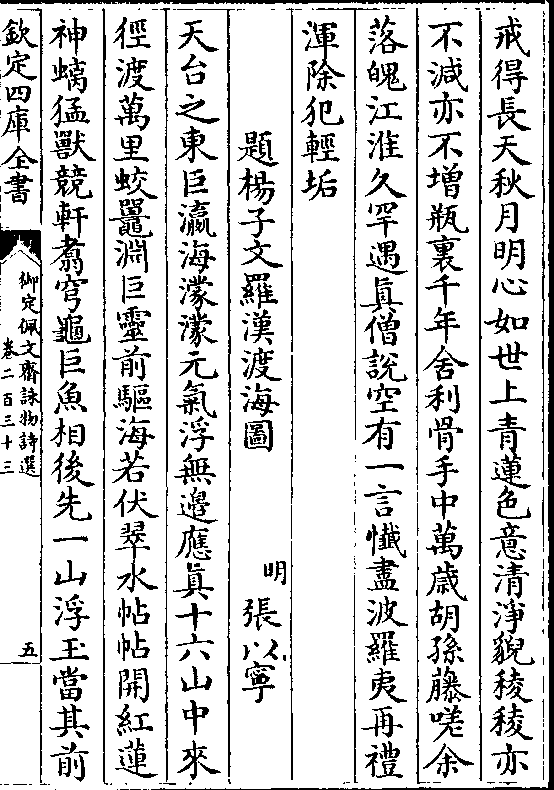 戒得長天秋月明心如世上青蓮色意清淨貌稜稜亦
不減亦不増瓶裏千年舍利骨手中萬歲胡孫藤嗟余
落魄江淮久罕遇眞僧說空有一言懺盡波羅夷再禮
渾除犯輕垢
題楊子文羅漢渡海圖
明 張以寧
天台之東巨瀛海濛濛元氣浮無邊應眞十六山中來
徑渡萬里蛟鼉淵巨靈前驅海若伏翠水帖帖開紅蓮
神螭猛獸競軒翥穹龜巨魚相後先一山浮玉當其前
欽定四庫全書
御定佩文齋詠物詩選
卷二百三十三
五